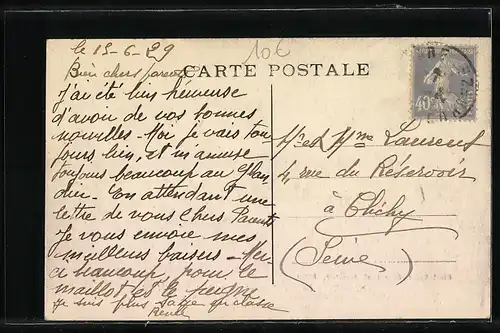 le 15-6-29
10€
CARTE POSTALE
Bien chers parents
J'ai été bien heureuse
d'avoir de vos bonnes
nouvelles - Moi je vais tou-
jours bien, et m'amuse
toujours beaucoup au
En attendant une
lettre de vous Chers Parents
Je vous envoie mes
meilleurs baisers - Mer-
ci beaucoup pour le
maillot et le
je suis plus sage qu'en classe
Renée
40c
Mr et Mme Laurent
4, rue du Réservoir
à Clichy
(Seine)